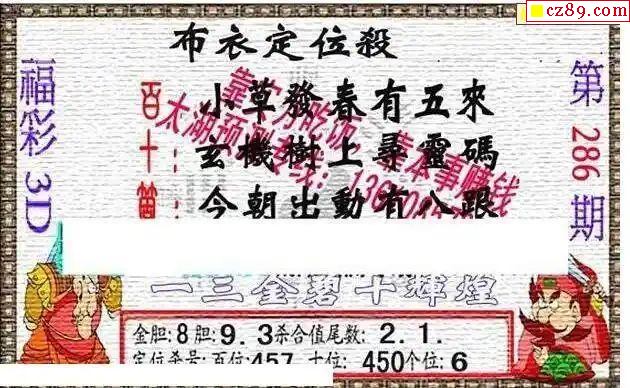 cz89.com
布衣定位殺
福彩3D
第286期
百:小草發春有五來
十:玄機樹上尋靈碼
今朝出動有八跟
靠本事赚钱
一三金碧十輝煌
金胆:8胆:9.3杀合值尾数:2.1.
定位杀号:百位:457 十位:450个位:6